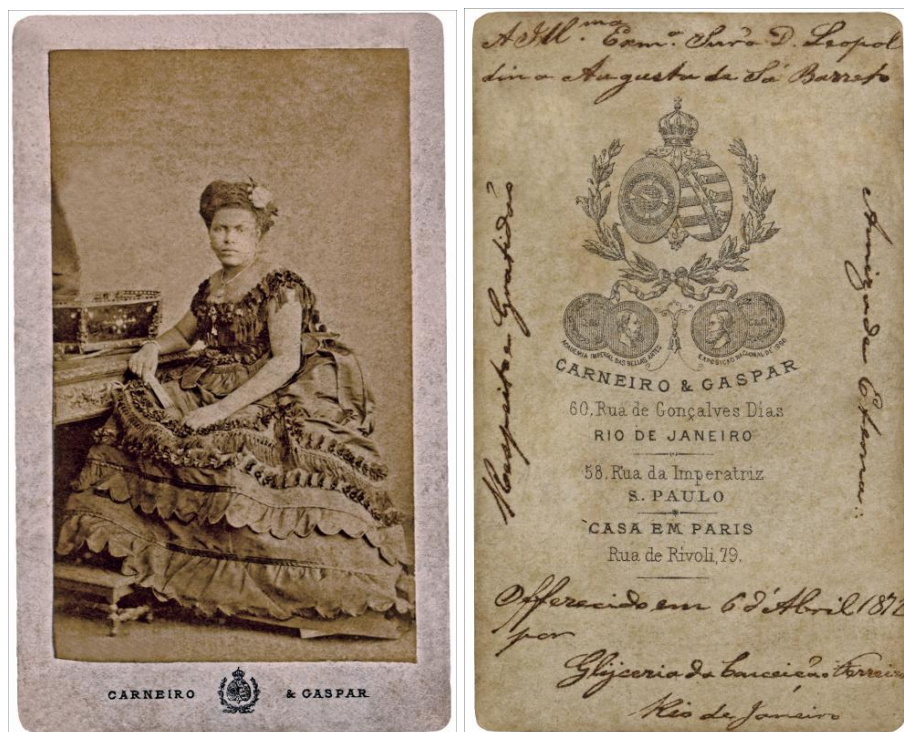 CARNEIRO & GASPAR
A Ill.ma Exmª. Snrª D. Leopol
dina Augusta de Sá Barreto
Respeito e Gratidão
Amizade Eterna
ACADEMIA IMPERIAL DAS BELLAS ARTES
EXPOSIÇÃO NACIONAL DE 1866
CARNEIRO & GASPAR
60, Rua de Gonçalves Dias
RIO DE JANEIRO
58, Rua da Imperatriz
S. PAULO
CASA EM PARIS
Rua de Rivoli, 79.
Offerecido em 6 d'Abril 1872
por
Glyceria da Conceição Ferreira
Rio de Janeiro